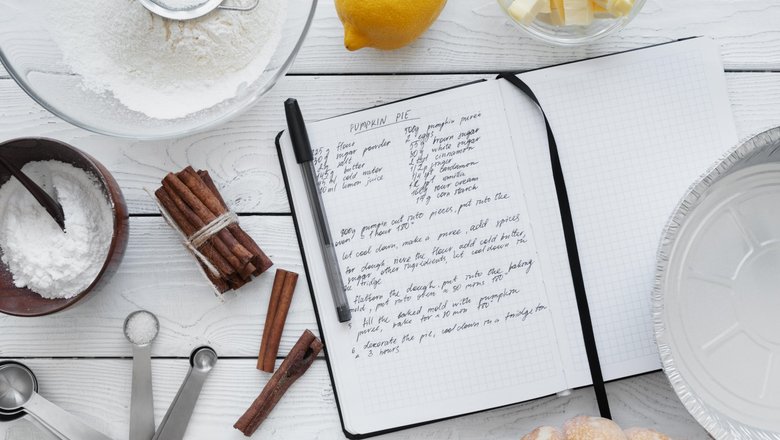 PUMPKIN PIE
225 g flour
30 g sugar powder
salt
145 g butter
ml cold water
10 ml lemon juice
900g pumpkin
2 eggs
55g brown sugar
30 g white sugar
2 tspl cinnamon
1/2 ginger
1/4 tpl cardamom
vanilla
160g sour cream
14g corn starch
900g pumpkin cut into pieces, put into the
oven 1 hour 180°
let cool down, make a puree, add spices
for dough, mix the flour, add cold butter,
sugar, other ingredients, let cool down in
fridge
flattern the dough, put into the baking
mold, put into oven 20 mins 180°
5 fill the baked mold with pumpkin
puree, bake for 50 min 180°
6 decorate the pie, cool down in a fridge for
3 hours